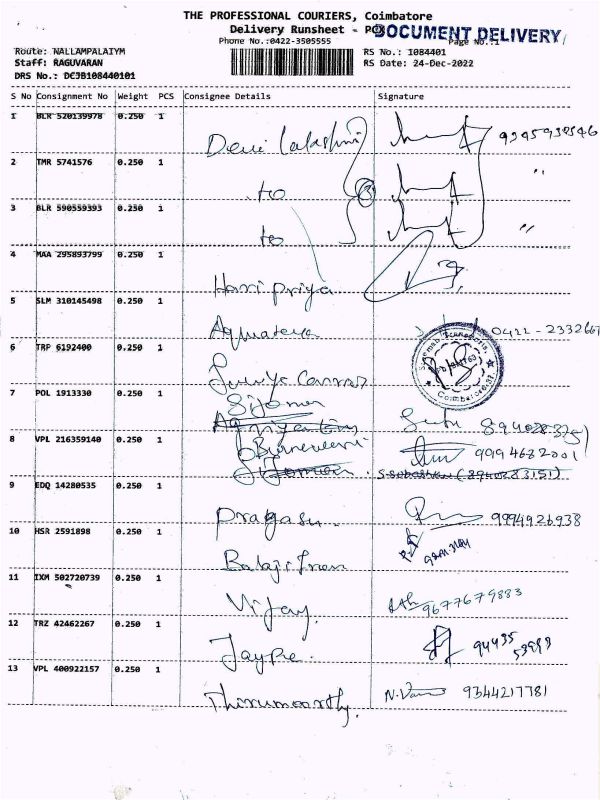 THE PROFESSIONAL COURIERS, Coimbatore
Delivery Runsheet - POD
DOCUMENT DELIVERY
Phone No.:0422-3505555
Page No.:1
Route: NALLAMPALAIYM
RS No.: 1084401
Staff: RAGUVARAN
RS Date: 24-Dec-2022
DRS No.: DCJB108440101
S No Consignment No Weight PCS Consignee Details Signature
1 BLR 520139978 0.250 1
Devi Lakshmi
2 TMR 5741576 0.250 1
to
3 BLR 590559393 0.250 1
to
4 MAA 295893799 0.250 1
Hari Priya
5 SLM 310145498 0.250 1
0422-2332667
6 TRP 6192400 0.250 1
7 POL 1913330 0.250 1
8 VPL 216359140 0.250 1
9994682001
(8940283151)
9 EDQ 14280535 0.250 1
Pragasu. 9994926938
10 HSR 2591898 0.250 1
11 IXM 502720739 0.250 1
Vijay. 9677679883
12 TRZ 42462267 0.250 1
JayPre.
94435
13 VPL 400922157 0.250 1
Thirumoorthy. 9344217781